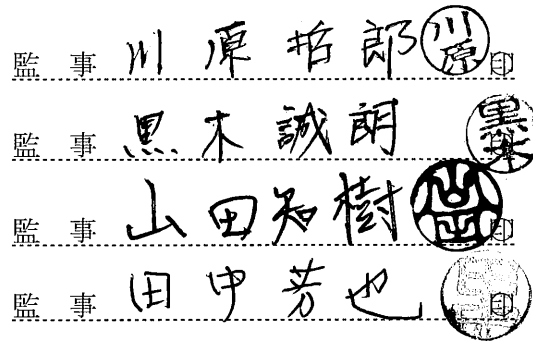 監事 川原哲郎 川原 印
監事 黒木誠朗 黒木 印
監事 山田知樹 山田 印
監事 田中芳也 印